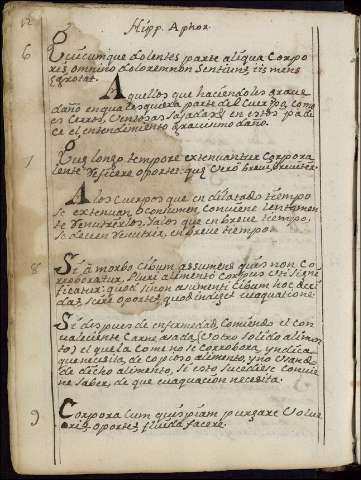 12
Hipp. Aphor.
6 Quicumque dolentes parte aliqua Corpo
ris, omnino dolorem non Sentiunt, iis mens
egrotat.
Aquellos que haciendoles grave
daño en qualesquiera parte del Cuerpo, como
es Ventosas Sajadas, en estos pade
ce el entendimiento gravissimo daño.
7 Que longo tempore extenuantur Corpora
lente reficere oportet: que vero brevi, breviter.
A los Cuerpos que en dilatado tiempo
se extenuan, o consumen, conviene lentamente
renutrirlos. Ya los que en breve tiempo,
se deven renutrir, en breve tiempo.
8 Si a morbo, Cibum assumens quis non Co
rroboratur, plure alimento Corpus uti signi
ficatur: quod si non asumenti Cibum hoc acci
dat, scire oportet, quod indiget evaquatione.
Si despues de enfermedad, Comiendo el con
valesciente Carne asada, u otro Solido alimen
to, el que la Come no se Corrobora, yndica
que necesita de copioso alimento, y no Usando
de dicho alimento, si esto sucediese Convie
ne saber, de que evaquación necesita.
9 Corpora Cum quispiam purgare Volue
rit, oportet fluida facere.